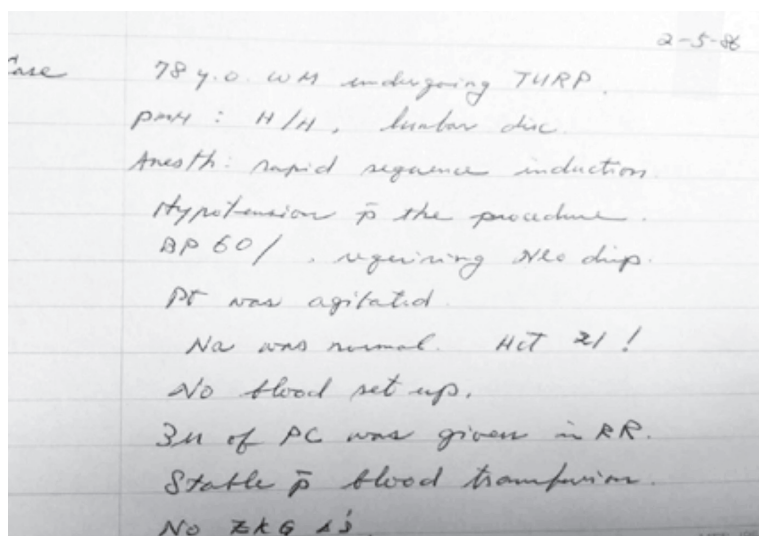 2-5-86
Case 78 y.o. WM undergoing TURP.
PMH : H/H, lumbar disc.
Anesth: rapid sequence induction.
Hypotension p̄ the procedure.
BP 60/ , requiring Neo drip.
Pt was agitated.
Na was normal. Hct 21 !
No blood set up.
3u of PC was given in RR.
Stable p̄ blood transfusion.
No EKG Δ's.